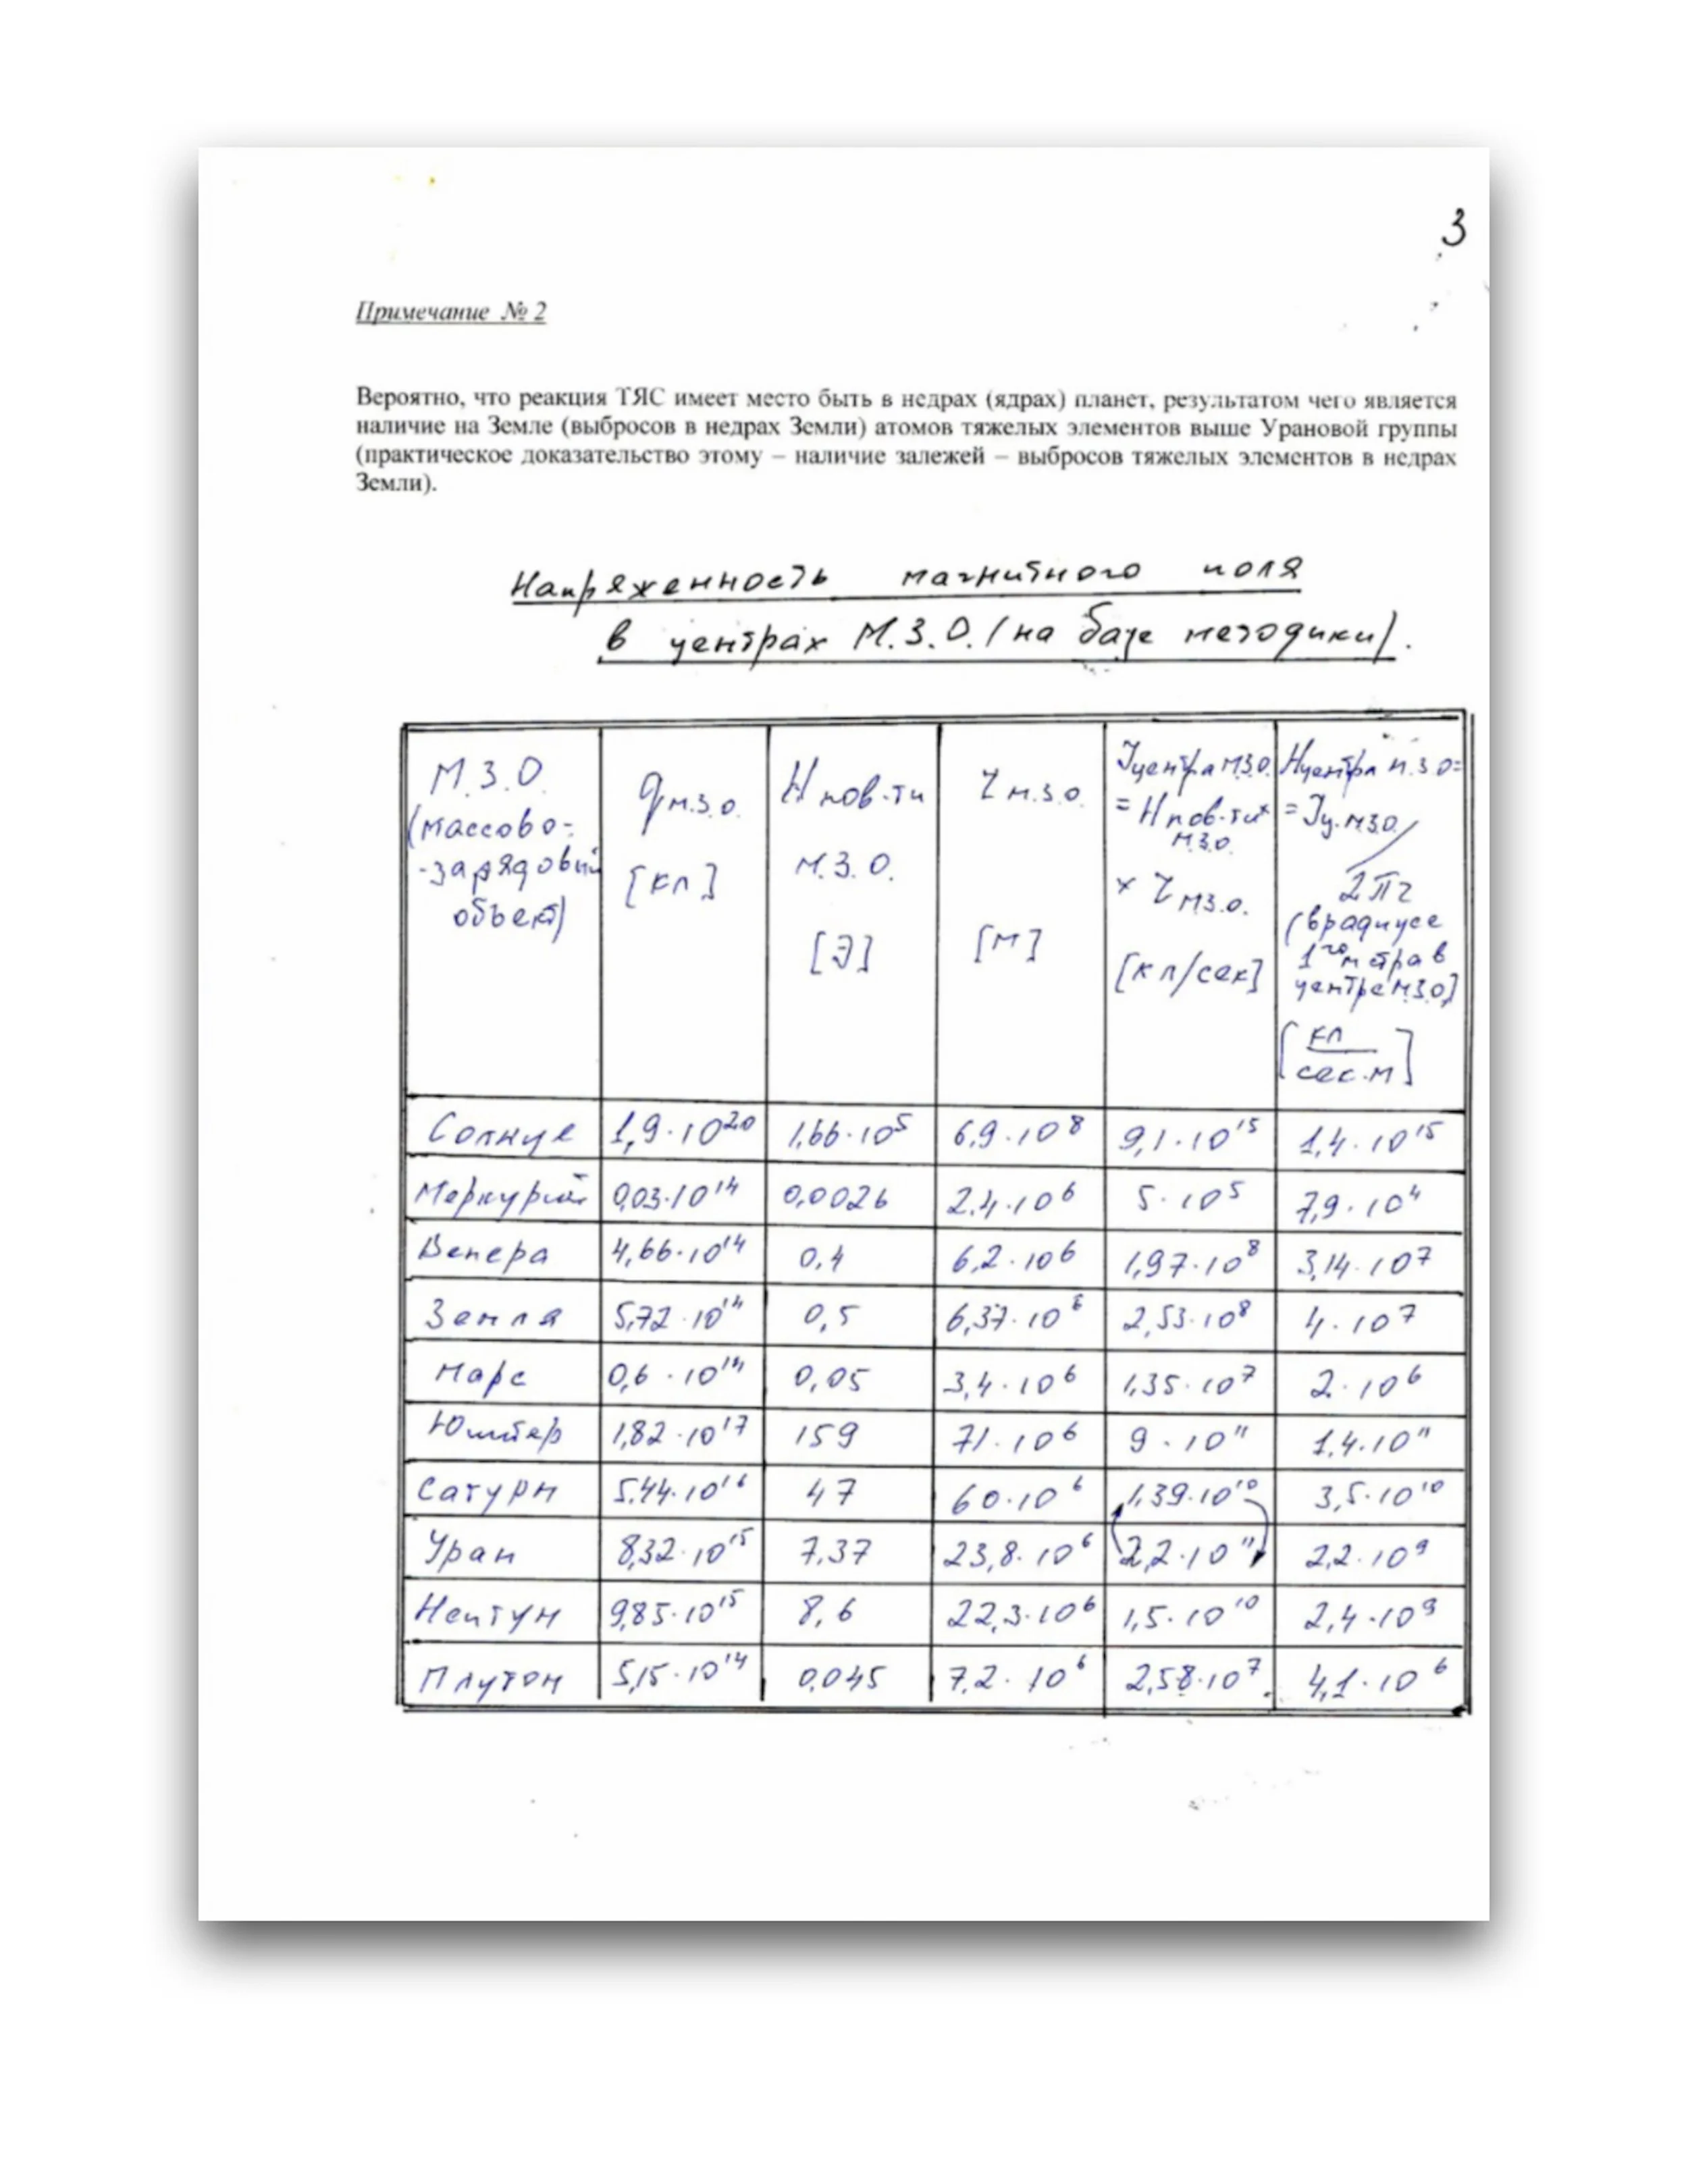 3
Примечание № 2
Вероятно, что реакция ТЯС имеет место быть в недрах (ядрах) планет, результатом чего является
наличие на Земле (выбросов в недрах Земли) атомов тяжелых элементов выше Урановой группы
(практическое доказательство этому – наличие залежей – выбросов тяжелых элементов в недрах
Земли).
Напряженность магнитного поля
в центрах М.З.О. (на базе методики).
М.З.О. (массово-зарядовый объект) | qм.з.о. [кл] | Hпов-ти м.з.о. [Э] | rм.з.о. [м] | Jцентра м.з.о. = Hпов-ти м.з.о. × rм.з.о. [кл/сек] | Hцентра м.з.о = Jц.м.з.о / 2πr (в радиусе 1го метра в центре м.з.о) [кл/сек.м]
Солнце | 1,9·10²⁰ | 1,66·10⁵ | 6,9·10⁸ | 9,1·10¹⁵ | 1,4·10¹⁵
Меркурий | 0,03·10¹⁴ | 0,0026 | 2,4·10⁶ | 5·10⁵ | 7,9·10⁴
Венера | 4,66·10¹⁴ | 0,4 | 6,2·10⁶ | 1,97·10⁸ | 3,14·10⁷
Земля | 5,72·10¹⁴ | 0,5 | 6,37·10⁶ | 2,53·10⁸ | 4·10⁷
Марс | 0,6·10¹⁴ | 0,05 | 3,4·10⁶ | 1,35·10⁷ | 2·10⁶
Юпитер | 1,82·10¹⁷ | 159 | 71·10⁶ | 9·10¹¹ | 1,4·10¹¹
Сатурн | 5,44·10¹⁶ | 47 | 60·10⁶ | 1,39·10¹⁰ | 3,5·10¹⁰
Уран | 8,32·10¹⁵ | 7,37 | 23,8·10⁶ | 2,2·10¹¹ | 2,2·10⁹
Нептун | 9,85·10¹⁵ | 8,6 | 22,3·10⁶ | 1,5·10¹⁰ | 2,4·10⁹
Плутон | 5,15·10¹⁴ | 0,045 | 7,2·10⁶ | 2,58·10⁷ | 4,1·10⁶